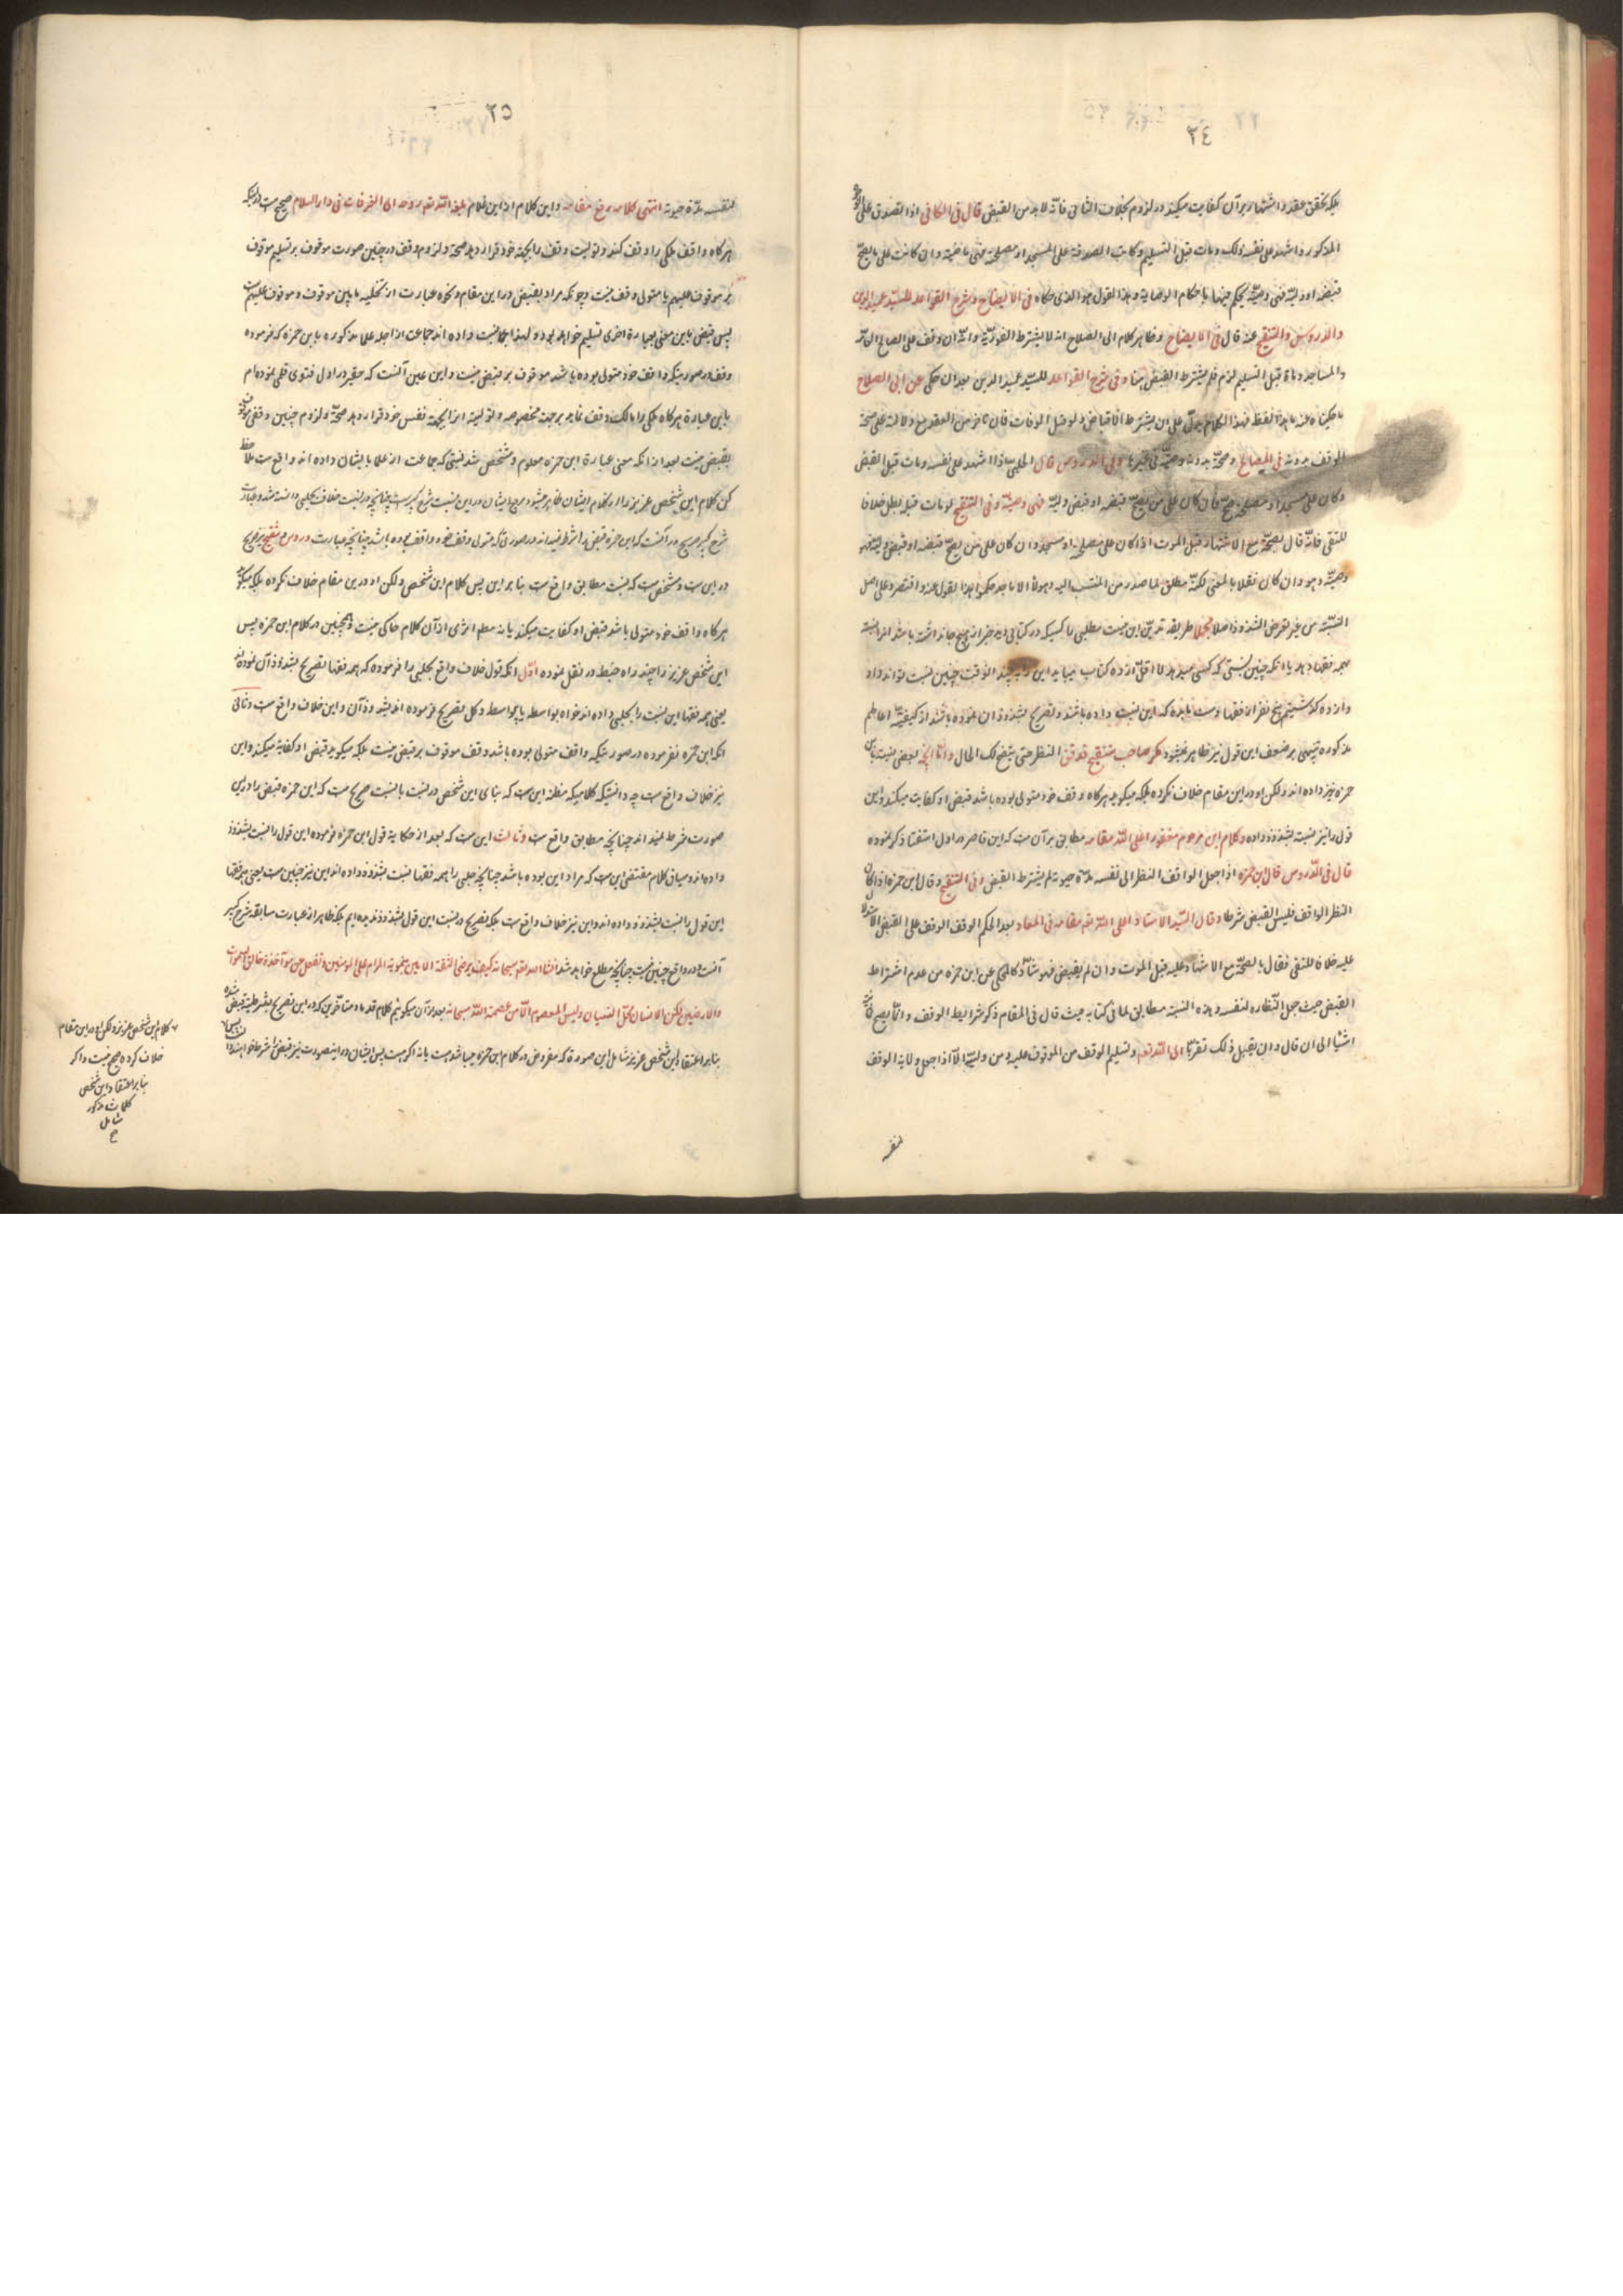 ٣٤
بلکه تحقق عقد و اشتهار بر آن کفایت میکند در لزوم بخلاف الثانی فانّه لا بد من القبض قال فی الکافی اذا تصدق علی
المذکور و اشهد علی نفسه بذلک و مات قبل التسلیم و کانت الصدقة علی المسجد او مصلحة فهی ماضیة و ان کانت علی ما یصحّ
قبضه او ولیّه فهی وصیّة یحکم فیها باحکام الوصایة و هذا القول هو الذی حکاه فی الایضاح و شرح القواعد للسیّد عمید الدین
والدروس والتنقیح عنه قال فی الایضاح و ظاهر کلام ابی الصلاح انه لا یشترط الفوریّة و انّه ان وقف علی المصالح العامّة
والمساجد و مات قبل التسلیم لزم فلم یشترط القبض هنا و فی شرح القواعد للسیّد عمید الدین بعد ان حکی عن ابی الصلاح
ما حکیناه عنه بهذا اللفظ فهذا الکلام یدلّ علی ان یشترط الاقباض و لو قبل الوفات
الوقف بدونه فی المصالح و صحّته بدونه وصیّة فی غیرها و فی الدروس قال الحلبی اذا اشهد علی نفسه و مات قبل القبض
و کان علی مسجد او مصلحة صحّ و ان کان علی من یصحّ قبضه او قبض ولیّه فهی وصیّة و فی التنقیح لو مات قبله بطل خلافا
للتقی فانّه قال بصحّته مع الاشهاد قبل الموت اذا کان علی مصلحة او مسجد و ان کان علی من یصحّ قبضه او قبض ولیّه فهو
وصیّة و هو و ان کان نقلا بالمعنی لکنّه مطابق لما صدر من المنتسب الیه و هولاء الاماجد حکوا هذا القول عنه و اقتصروا علی اصل
النسبة من غیر تعرض الشذوذ اصلا
همه فقها دهد با انکه چنین نسبتی که کسی میدهد لا اقلّ از ده کتاب میباید این را به بیند انوقت چنین نسبت تواند داد
و از ده گذشتیم پنج نفر از فقها
مذکوره تنبهی بر ضعف این قول نیز ظاهر نمیشود مگر صاحب تنقیح
حمزه نیز داده اند و لکن او در این مقام خلاف نکرده بلکه میکوید هرکاه وقف خود متولی بوده باشد قبض او کفایت میکند و این
قول را نیز نسبة بشذوذ داده و کلام این مرحوم مغفور اعلی الله مقامه مطابق بر آن است که این قاصر در اول استفتا ذکر نموده
قال فی الدّروس قال ابن حمزه اذا جعل الواقف النظر الی نفسه مدّة حیوته لم یشترط القبض و فی التنقیح و قال ابن حمزه اذا کان
النظر الواقف فلیس القبض شرطا و قال السّید الاستاد اعلی الله تعالی مقامه فی المعاد بعد الحکم الوقف الوقف علی القبض
علیه خلافا للتقی فقال بالصحّة مع الاشهاد علیه قبل الموت و ان لم یقبض فهو شاذّ کالمحکی عن ابن حمزه من عدم اشتراط
القبض حیث جعل النّظاره لنفسه و هذه النسبة مطابق لما فی کتابه حیث قال فی المقام ذکر شرایط الوقف و انّما یصح
اشیا الی ان قال و ان یقبل ذلک تقرّبا الی الله تعالی و تسلیم الوقف من الموقوف علیه او من ولیّه الاّ اذا جعل ولایة الوقف
لنفسه
٣٥
لنفسه مدّة حیوته انتهی کلامه رفع مقامه و این کلام از این علام بلغه الله تعالی روحه الی الغرفات فی دار السلام صحیح است در اینکه
هرکاه واقف ملکی را وقف کند و تولیت وقف را بجهة خود قرار دهد صحة و لزوم وقف در چنین صورت موقوف بر تسلیم موقوف
بر موقوف علیهم یا متولی وقف نیست و چونکه مراد بقبض در این مقام و نحوه عبارت از تخلیه مابین موقوف و موقوف علیهم است
پس قبض باین معنی بعبارة اخری تسلیم خواهد بود و لهذا جماعت از اجله علما مذکوره بابن حمزه که فرموده
وقف در صورتیکه واقف خود متولی بوده باشد موقوف بر قبض نیست و این عین آنست که حقیر در اول فتوی قلمی نموده ام
باین عبارة هرکاه ملکی را مالک وقف نماید بر جهت مخصوصه و تولیته انرا بجهة نفس خود قرار دهد صحّة و لزوم چنین وقفی موقوف
بقبض نیست بعد از انکه معنی عبارة ابن حمزه معلوم و مشخص شد نسبتی که جماعت از علما بایشان داده اند واقع است
کن کلام این شخص عزیز را
شرح کبیر صریح در آنست که ابن حمزه قبض را شرط نمیداند در صورتی که متولی وقف خود واقف بوده باشد چنانچه عبارت دروس و تنقیح نیز صریح
در این است و مشخص است که نسبت مطابق واقع است بنا بر این پس کلام این شخص و لکن او در این مقام خلاف نکرده بلکه میکوید
هرکاه واقف خود متولی باشد قبض او کفایت میکند یا نه معلم اثری از آن کلام حاکی نیست و همچنین در کلام ابن حمزه پس
این شخص عزیز را چند راه خبط در نقل نموده اوّل انکه قول خلاف واقع بحلبی را فرموده که همه فقها تصریح بشذوذ آن نموده اند
یعنی همه فقها این نسبت را بحلبی داده اند خواه بواسطه یا بلا واسطه و کل تصریح فرموده اند بشذوذ آن و این خلاف واقع است و ثانی
انکه ابن حمزه نفرموده در صورتیکه واقف متولی بوده باشد وقف موقوف بر قبض نیست بلکه میکوید قبض او کفایة میکند و این
نیز خلاف واقع است چه دانستیکه کلامیکه منظر این است که بنای این شخص در نسبت با نسبت صریح است که ابن حمزه قبض را در این
صورت شرط نمیداند چنانچه مطابق واقع است و ثالث این است که بعد از حکایة قول ابن حمزه فرموده این قول را نسبت بشذوذ
داده اند و سیاق کلام مقتضی این است که مراد این بوده باشد چنانچه حلبی را همه فقها نسبت بشذوذ داده اند این نیز چنین است یعنی همه فقها
این قول را نسبت بشذوذ داده اند و این نیز خلاف واقع است بلکه تصریح در نسبت این قول بشذوذ ندیده ایم بلکه ظاهر از عبارت سابقه شرح کبیر
آنست و در واقع چنین نیست چنانچه مطلع خواهد شد انشاء الله تعالی سبحانه
والارضین لکن الانسان محلّ النسیان و لیس المعصوم الاّ من عصمه الله سبحانه بعد از آن میکوئیم کلام قدما و متاخرین که در این تصریح بشرطیة قبض شده
بنا بر اعتقاد این شخص عزیز شامل این صورة که مفروض در کلام ابن حمزه میباشد هست یا نه اکر هست پس ایشان در اینصورت نیز قبض را شرط میدانند
کلام این شخص عزیز و لکن او در این مقام
خلاف کرده صحیح نیست و اکر
بنا بر اعتقاد این شخص
کلمات مذکور
شامل